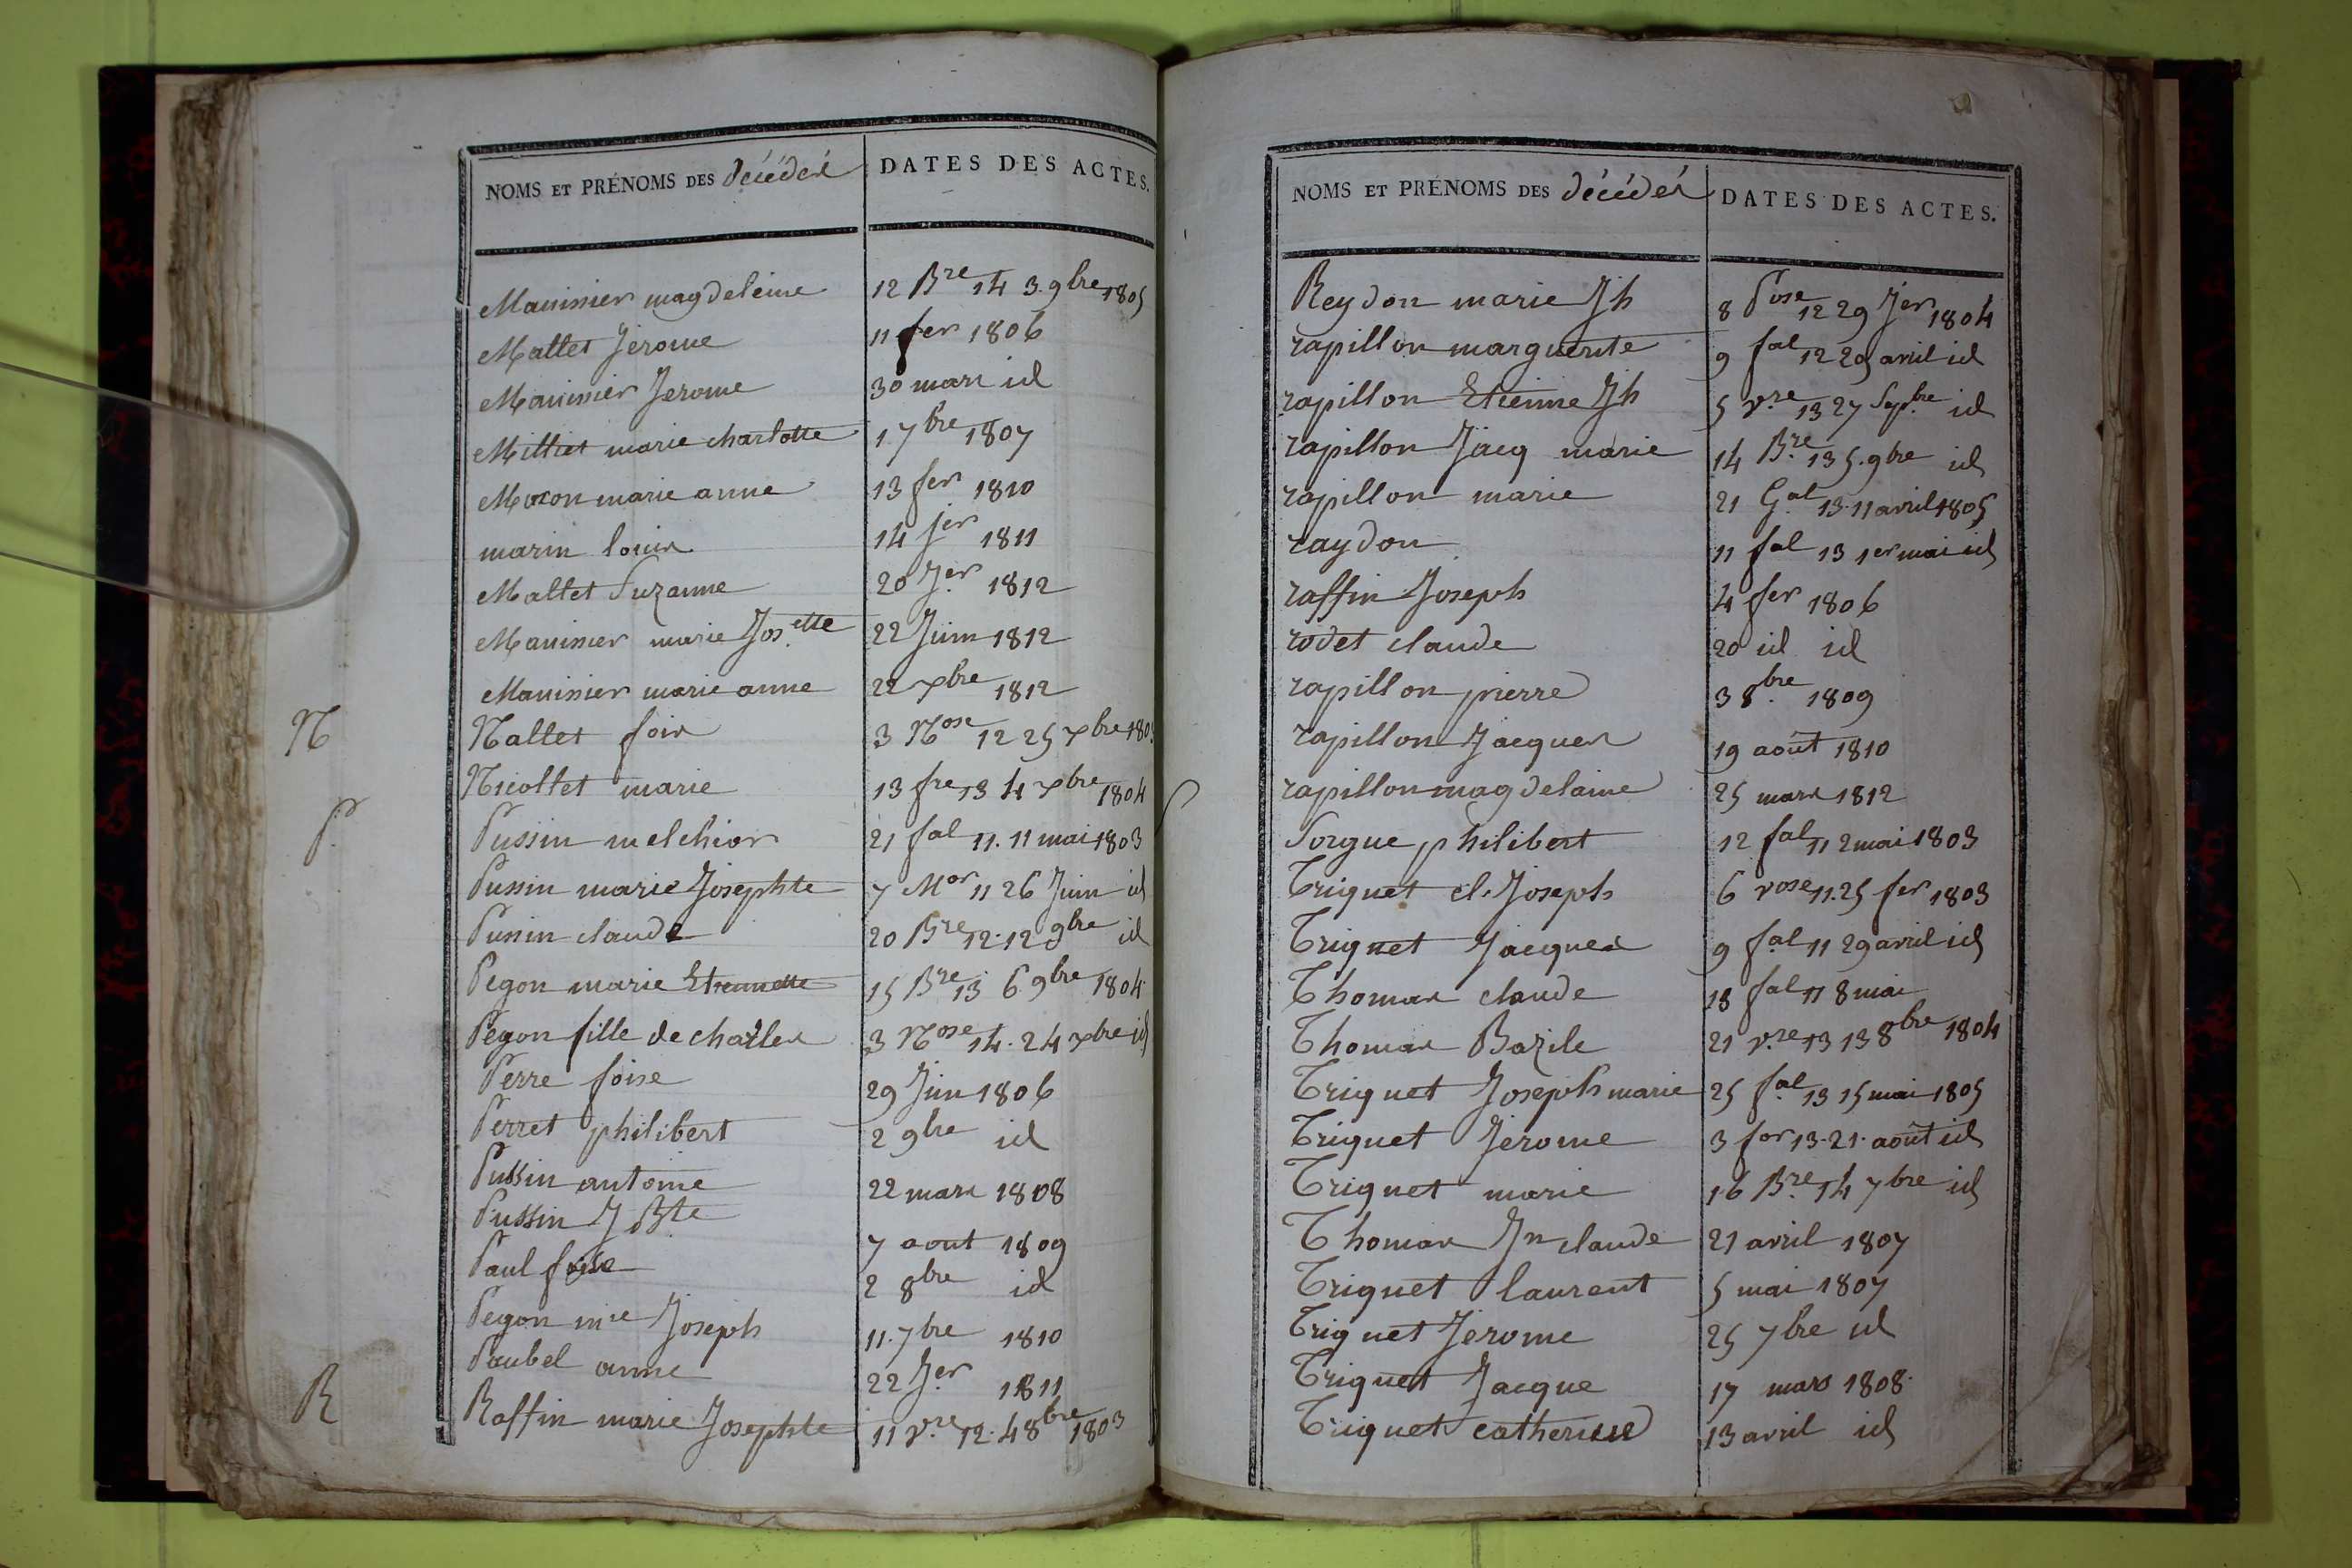 NOMS ET PRÉNOMS DES décédés DATES DES ACTES.
Maunier magdeleine 12 Bre 14 3.9bre 1805
Mallet Jerome 11 fer 1806
Maunier Jerome 30 mars id
Milliet marie charlotte 1.7bre 1807
Moxon marie anne 13 fer 1810
marin louis 14 jer 1811
Mallet Suzanne 20 Jer 1812
Maunier marie Josette 22 Juin 1812
Maunier marie anne 22 xbre 1812
N
Nallet fois 3 Nose 12 25 xbre 180
Nicollet marie 13 fre 13 4 xbre 1804
P.
Pussin melchior 21 fal 11. 11 mai 1803
Pussin marie Josephte 7 Mor 11 26 Juin id
Pussin claude 20 Bre 12.12 9bre id
Pegon marie Etiennette 15 Bre 13 6.9bre 1804
Pegon fille de charles 3 Nose 14. 24 xbre id
Perre foise 29 Juin 1806
Perret philibert 2 9bre id
Pussin antoine 22 mars 1808
Pussin J Bte 7 aout 1809
Paul foise 2 8bre id
Pegon mie Joseph 11.7bre 1810
Paubel anne 22 Jer 1811
R
Raffin marie Josephte 11 vre 12. 4 8bre 1803
NOMS ET PRÉNOMS DES décédés DATES DES ACTES.
Reydon marie Jh 8 Pose 12 29 Jer 1804
rapillon marguerite 9 fal 12 29 avril id
rapillon Etienne Jh 5 vre 13 27 Sepbre id
rapillon Jacq marie 14 Bre 13 5.9bre id
rapillon marie 21 Gal 13. 11 avril 1805
raydon 11 fal 13 1er mai id
raffin Joseph 4 fer 1806
rodet claude 20 id id
rapillon pierre 3 8bre 1809
rapillon Jacques 19 août 1810
rapillon magdelaine 25 mars 1812
S
Sorgue philibert 12 fal 11 2 mai 1803
Triquet cl. Joseph 6 vose 11. 25 fer 1803
Triquet Jacques 9 fal 11 29 avril id
Thomas claude 18 fal 11 8 mai
Thomas Bazile 21 vre 13 13 8bre 1804
Triquet Joseph marie 25 fal 13 15 mai 1805
Triquet Jerome 3 for 13. 21. août id
Triquet marie 16 Bre 14 7bre id
Thomas Jn claude 21 avril 1807
Triquet laurent 5 mai 1807
Triquet Jerome 25 7bre id
Triquet Jacque 17 mars 1808.
Triquet catherine 13 avril id